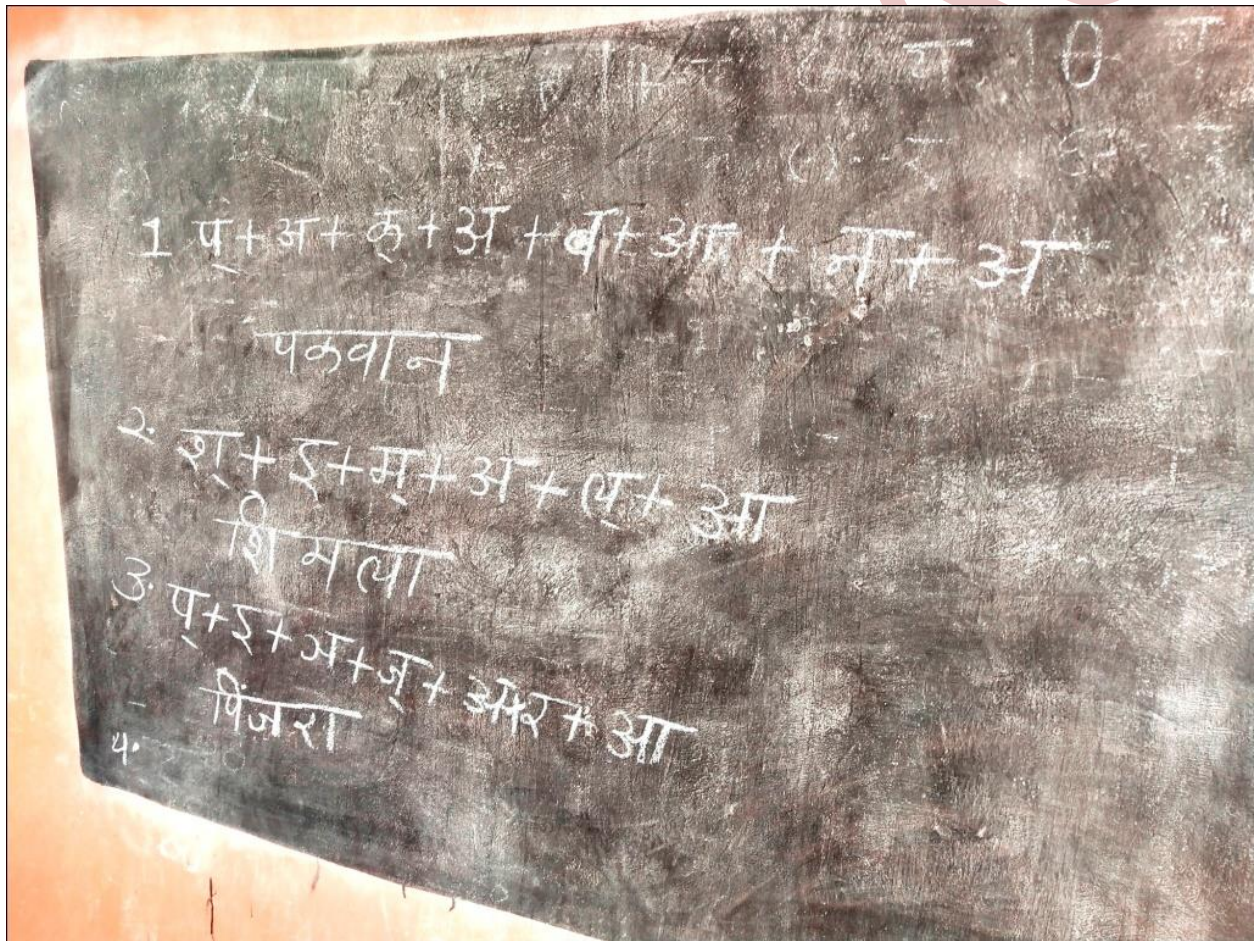 1 प् + अ + क् + अ + व् + आ + न् + अ
पकवान
२. श् + इ + म् + अ + ल् + आ
शिमला
3. प् + इ + ञ + ज् + अ + र + आ
पिंजरा
4.